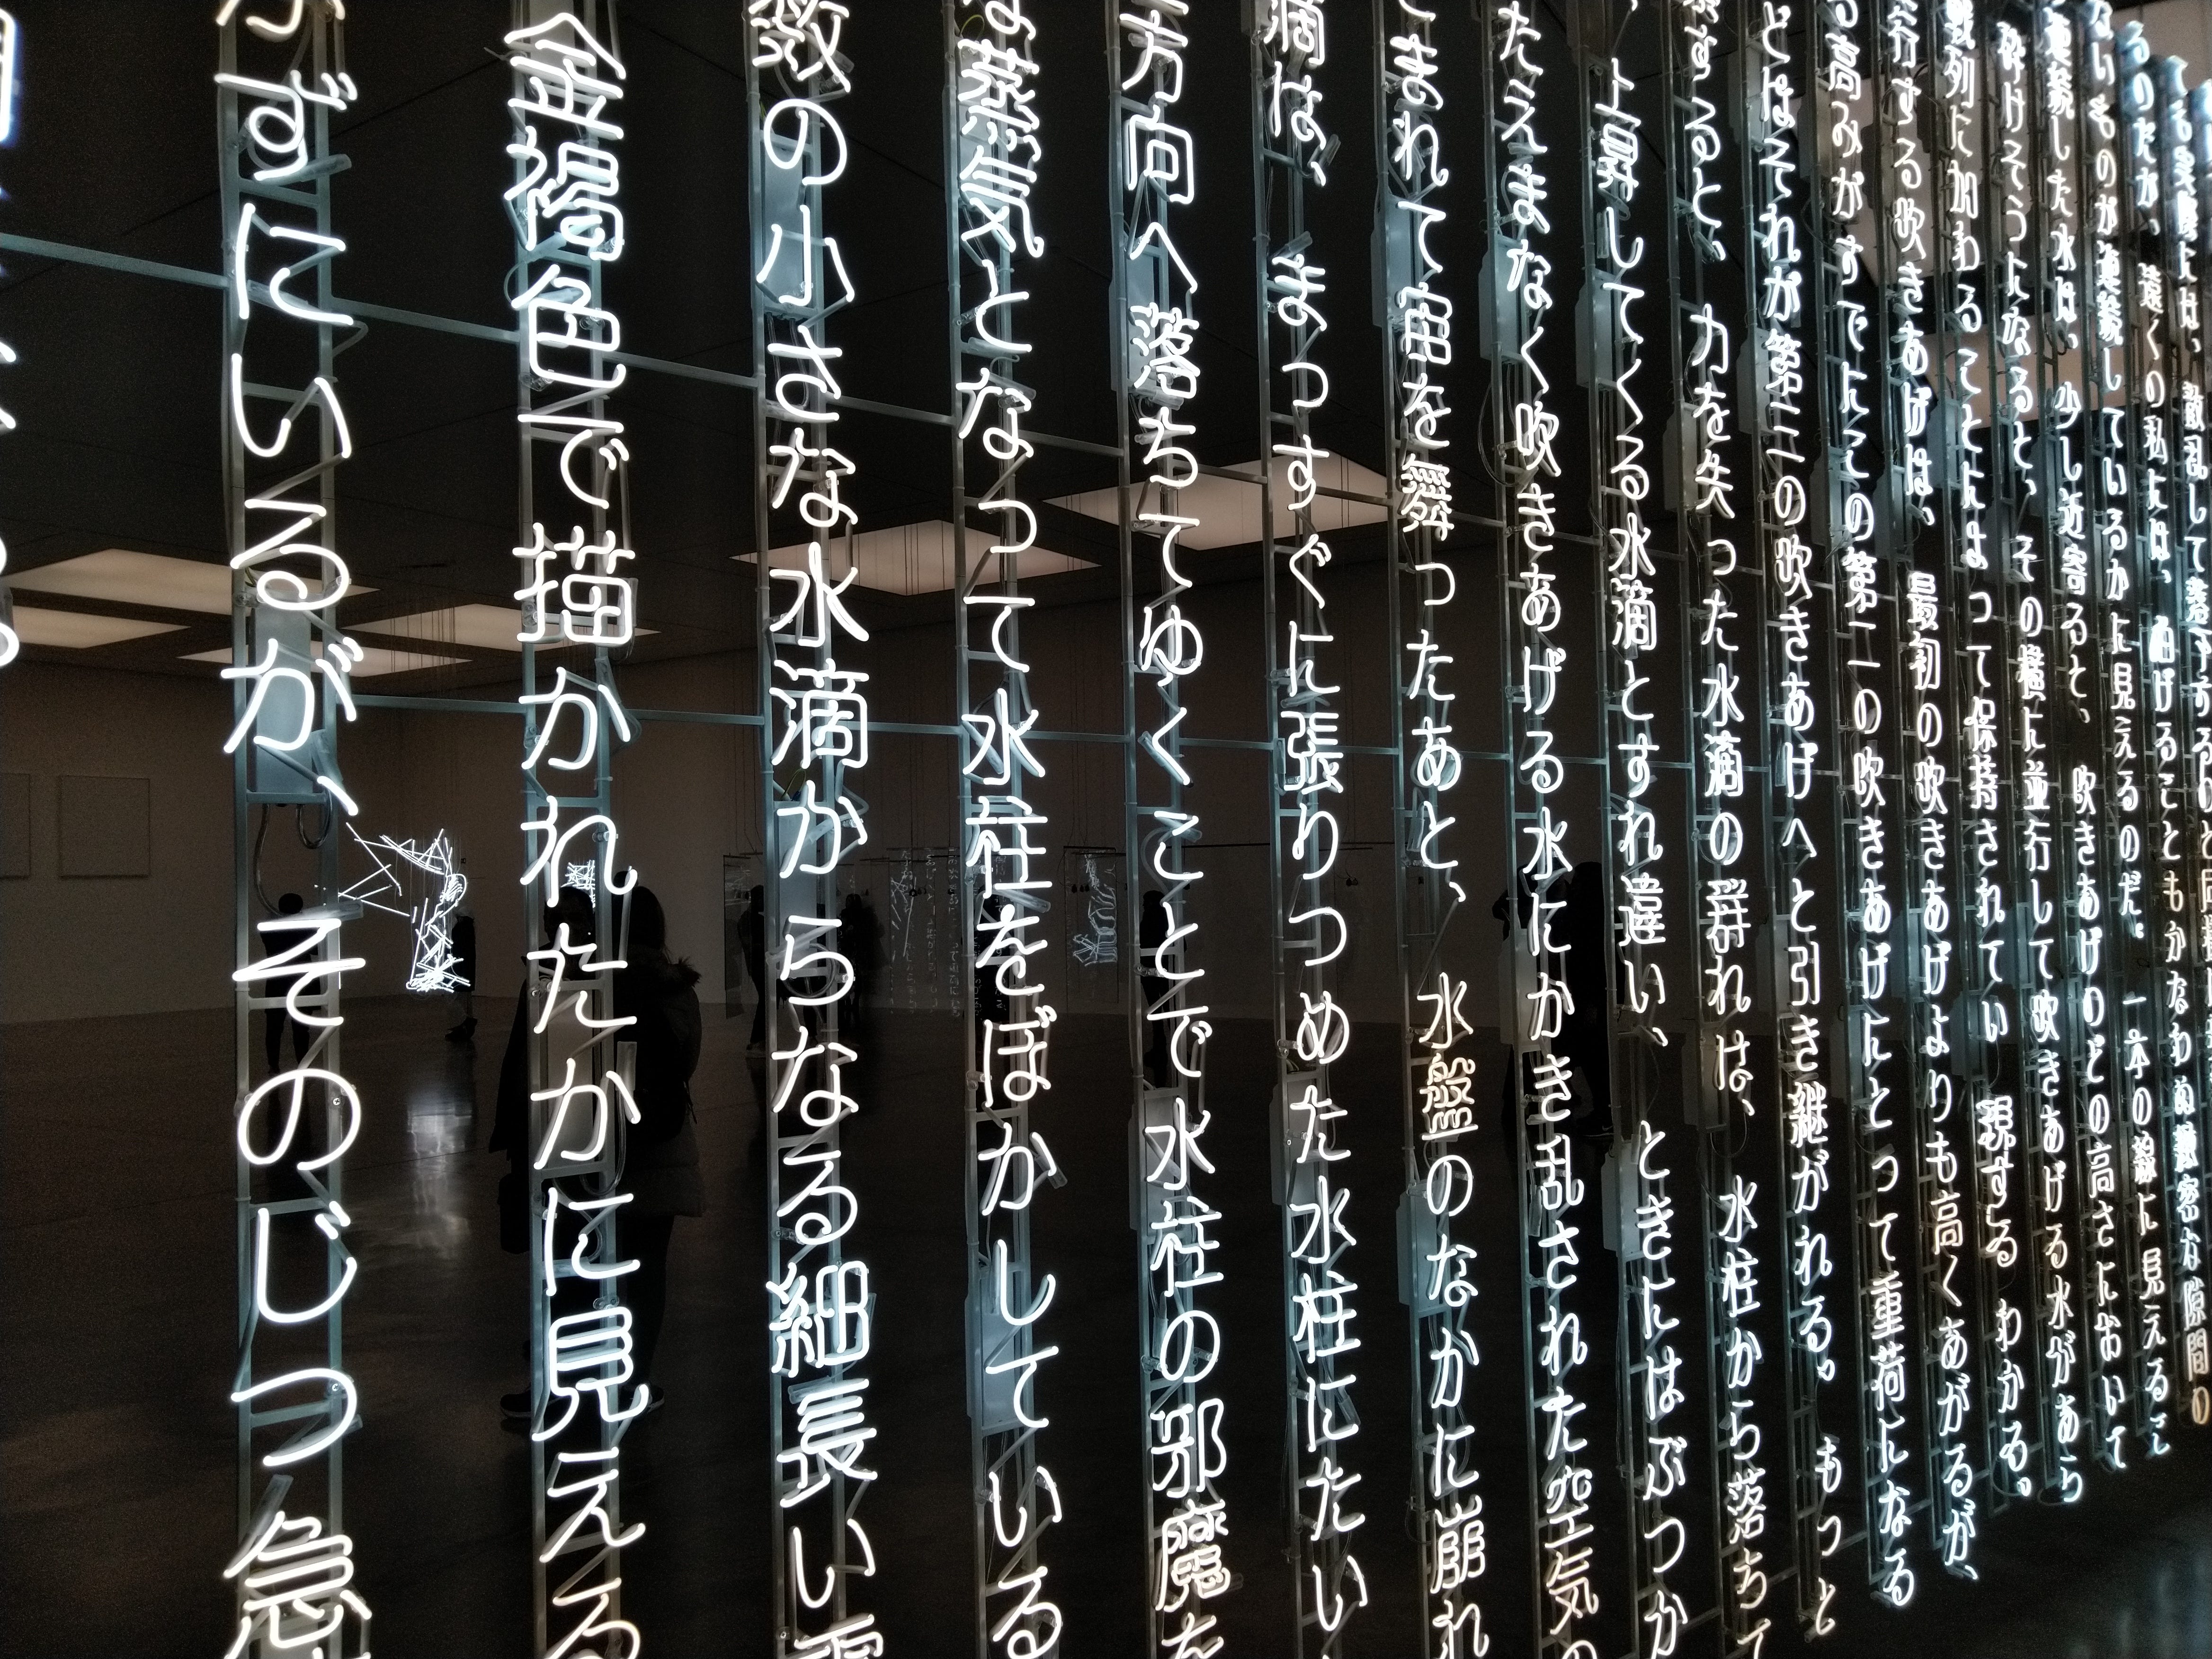 実際には、散乱して
るのだが、遠くの私には、曲げることもかなわぬ緻密な隙間の
ないものが連繋しているかに見えるのだ。一本の線に見える
連繋した水は、少し近寄ると、吹きあげのどの高さにおいて
砕けそうになると、その横に並行して吹きあげる水があら
戦列に加わることによって保持されてい わかる。
行する吹きあげは、最初の吹きあげよりも高くあがるが、
る高みがすでにこの第二の吹きあげにとって重荷になる
どはそれが第三の吹きあげへと引き継がれる。もっと
すると、力を失った水滴の群れは、水柱から落ちて
、上昇してくる水滴とすれ違い、ときにはぶつか
たえまなく吹きあげる水にかき乱された空気の
まれて宙を舞ったあと、水盤のなかに崩れ
滴は、まっすぐに張りつめた水柱にたい
方向へ落ちてゆくことで水柱の邪魔を
な蒸気となって水柱をぼかしている
数の小さな水滴からなる細長い
金褐色で描かれたかに見える
ずにいるが、そのじつ急